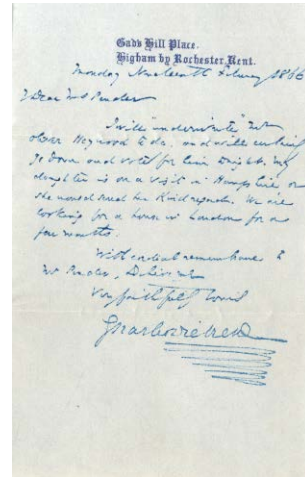 Gad's Hill Place,
Higham by Rochester, Kent.
Monday Nineteenth February 1866
Dear Mrs
I will
dear Heywood to do, and will
go down and vote for him. My
daughter is on a visit in Hampshire or
she would send her kind regards. We are
looking for a house in London for a
few months.
With cordial remembrance to
Mr Believe me
Very faithfully Yours
Charles Dickens